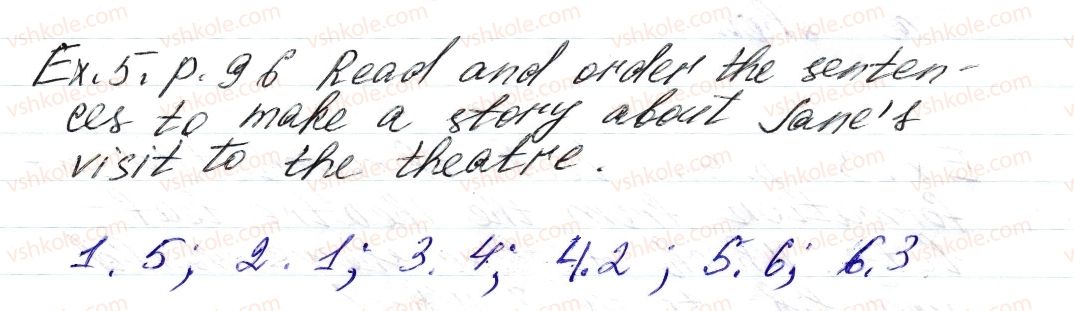 Ex.5. p.96 Read and order the senten-
ces to make a story about Jane's
visit to the theatre.
1. 5; 2. 1; 3. 4; 4.2 ; 5. 6; 6.3